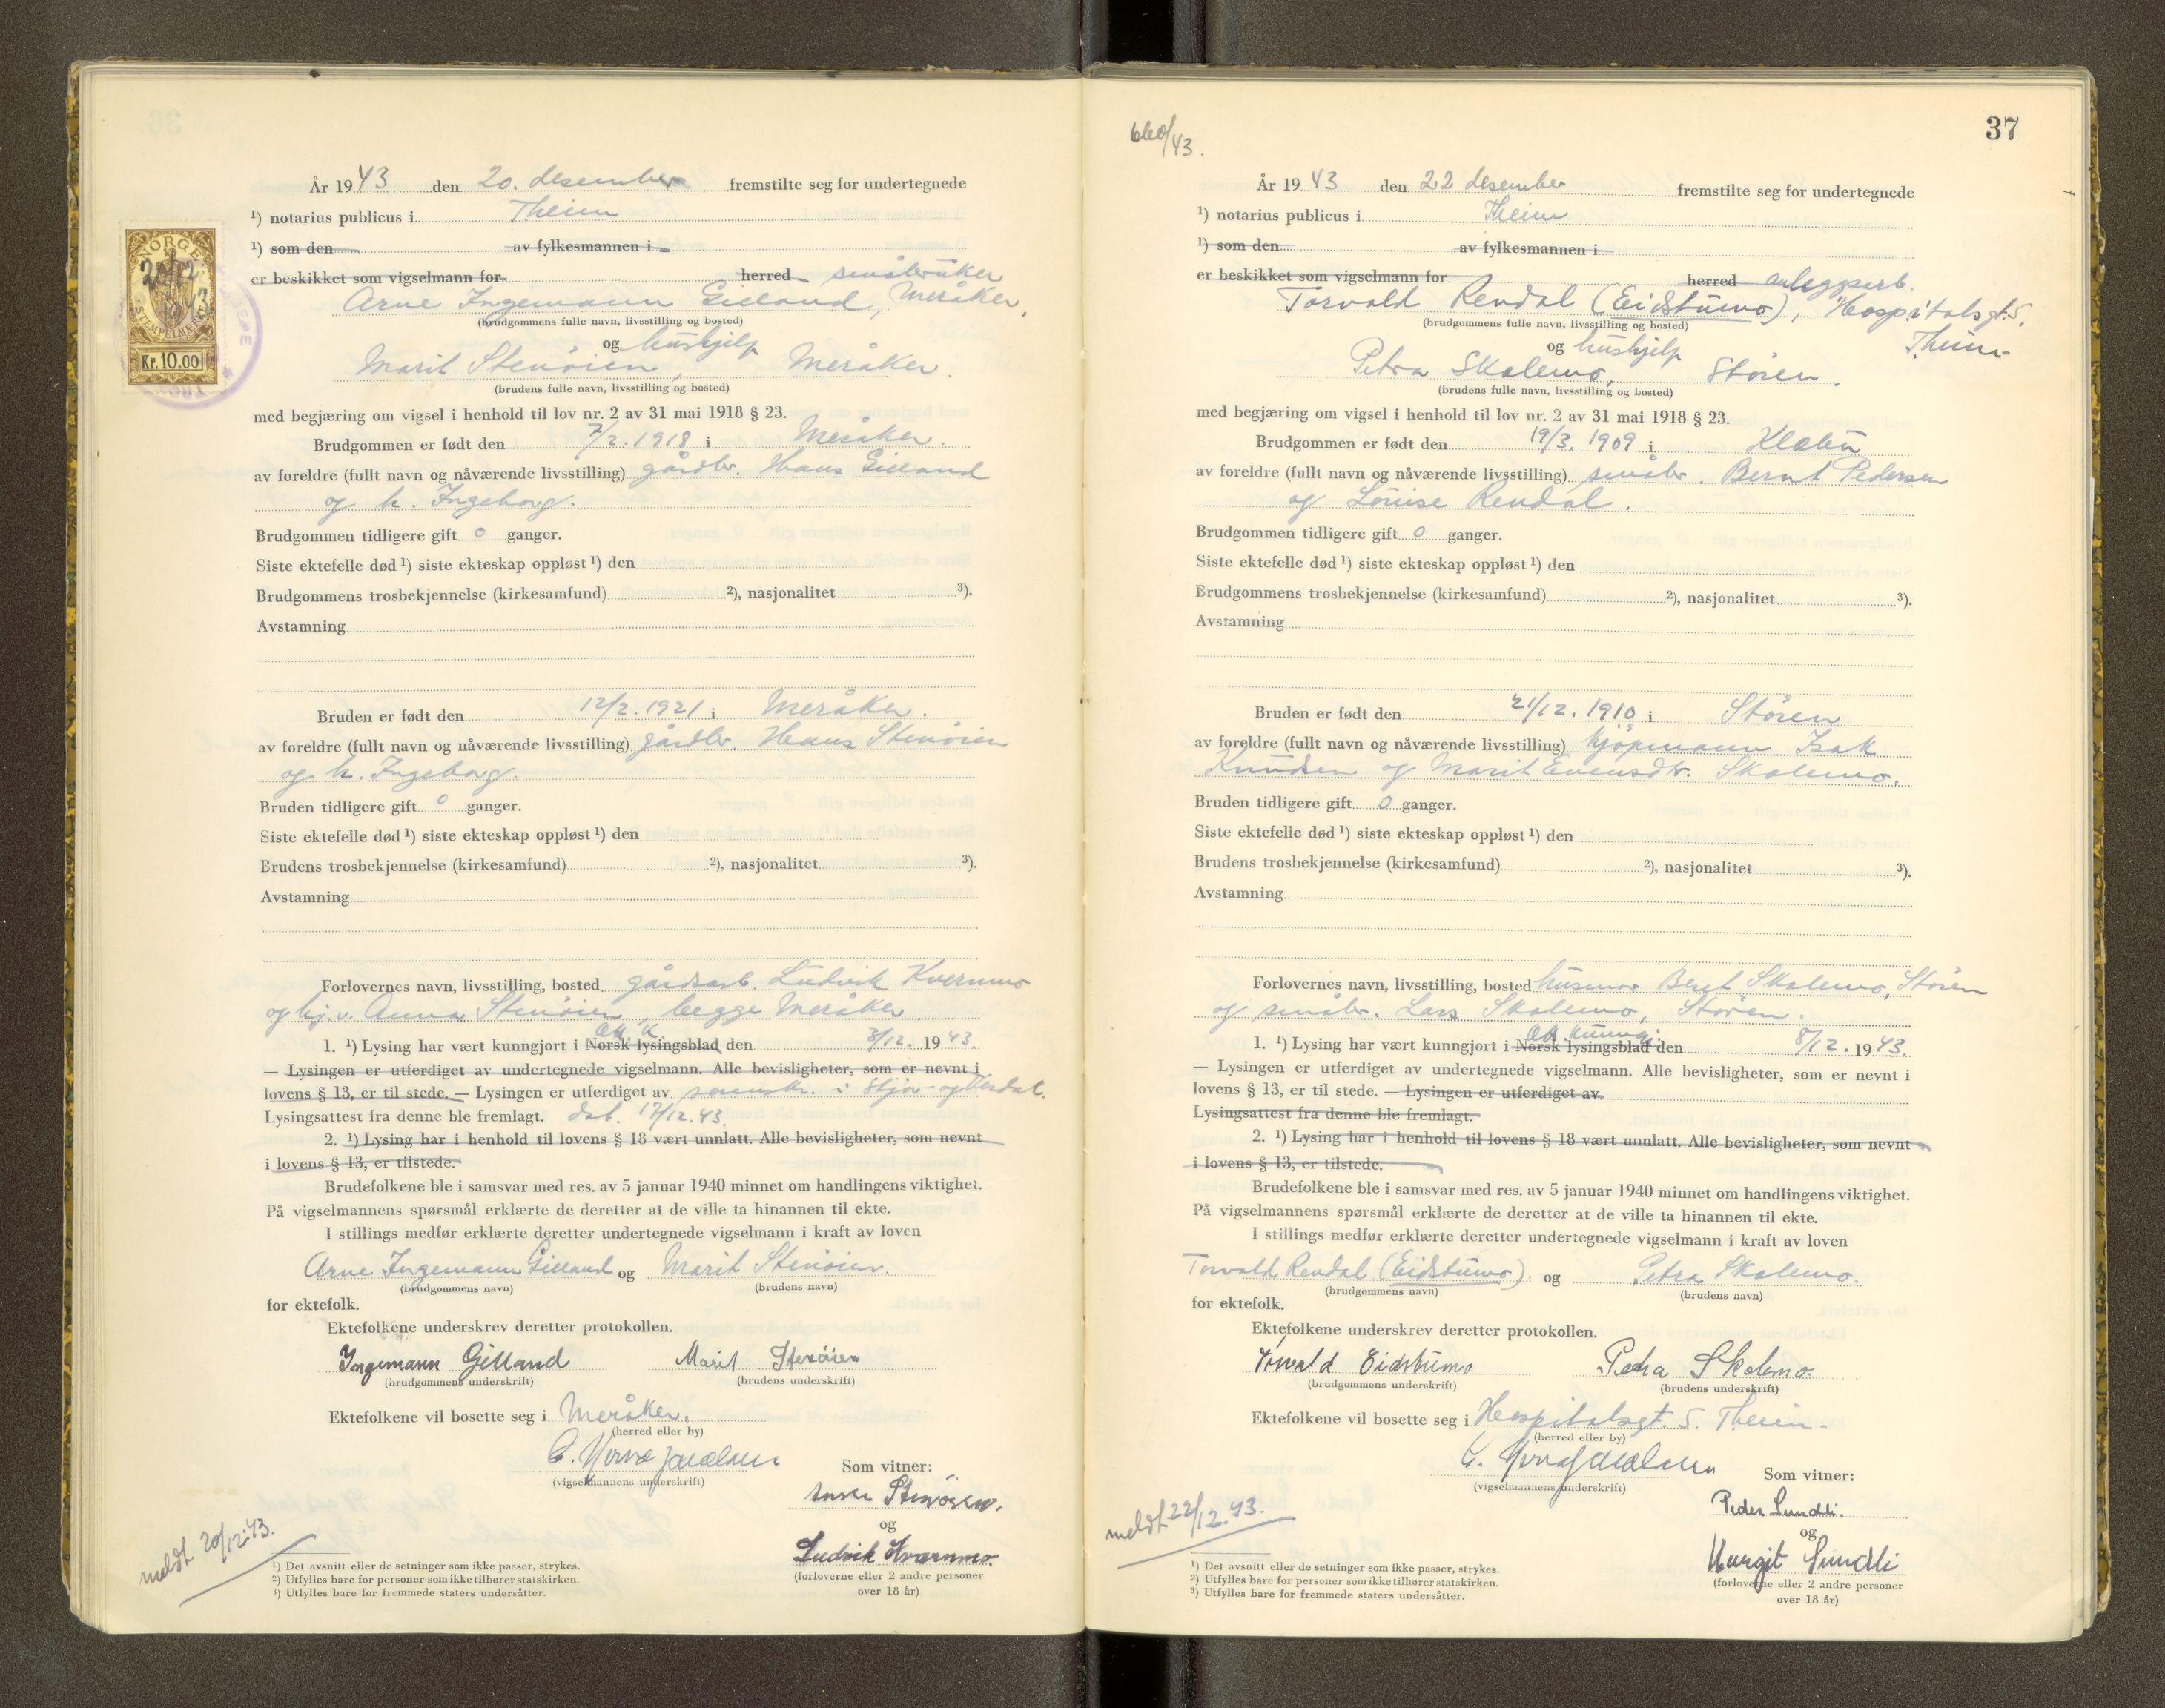 År 1943 den 20. desember fremstilte seg for undertegnede
¹) notarius publicus i Theim
¹) som den av fylkesmannen i
er beskikket som vigselmann for herred småbruker
Arne Ingemann Gilland, Meråker.
(brudgommens fulle navn, livsstilling og bosted)
og hushjelp
Marit Stenöien, Meråker.
(brudens fulle navn, livsstilling og bosted)
med begjæring om vigsel i henhold til lov nr. 2 av 31 mai 1918 § 23.
Brudgommen er født den 7/2. 1918 i Meråker.
av foreldre (fullt navn og nåværende livsstilling) gårdbr. Hans Gilland
og h. Ingeborg.
Brudgommen tidligere gift 0 ganger.
Siste ektefelle død ¹) siste ekteskap oppløst ¹) den
Brudgommens trosbekjennelse (kirkesamfund) ²), nasjonalitet ³).
Avstamning
Bruden er født den 12/2. 1921 i Meråker.
av foreldre (fullt navn og nåværende livsstilling) gårdbr. Hans Stenöien
og h. Ingeborg.
Bruden tidligere gift 0 ganger.
Siste ektefelle død ¹) siste ekteskap oppløst ¹) den
Brudens trosbekjennelse (kirkesamfund) ²), nasjonalitet ³).
Avstamning
Forlovernes navn, livsstilling, bosted gårdsarb. Ludvik Kvernmo
og hj.v. Anna Stenöien, begge Meråker
1. ¹) Lysing har vært kunngjort i Norsk lysingsblad den 3/12. 1943.
— Lysingen er utferdiget av undertegnede vigselmann. Alle bevisligheter, som er nevnt i
lovens § 13, er til stede. — Lysingen er utferdiget av sorenskr. i Stjør- og Verdal.
Lysingsattest fra denne ble fremlagt. dat. 17/12.43.
2. ¹) Lysing har i henhold til lovens § 18 vært unnlatt. Alle bevisligheter, som nevnt
i lovens § 13, er tilstede.
Brudefolkene ble i samsvar med res. av 5 januar 1940 minnet om handlingens viktighet.
På vigselmannens spørsmål erklærte de deretter at de ville ta hinannen til ekte.
I stillings medfør erklærte deretter undertegnede vigselmann i kraft av loven
Arne Ingemann Gilland og Marit Stenöien.
(brudgommens navn) (brudens navn)
for ektefolk.
Ektefolkene underskrev deretter protokollen.
Ingemann Gilland Marit Stenöien
(brudgommens underskrift) (brudens underskrift)
Ektefolkene vil bosette seg i Meråker.
(herred eller by)
(vigselmannens underskrift)
Som vitner:
Anna Stenöien.
og
Ludvik Kvernmo.
(forloverne eller 2 andre personer
over 18 år)
meldt 20/12.43.
¹) Det avsnitt eller de setninger som ikke passer, strykes.
²) Utfylles bare for personer som ikke tilhører statskirken.
³) Utfylles bare for fremmede staters undersåtter.
NORGE
20/12
43
STEMPELMERKE
Kr. 10.00
660/43.
37
År 1943 den 22 desember fremstilte seg for undertegnede
¹) notarius publicus i Theim
¹) som den av fylkesmannen i
er beskikket som vigselmann for herred anleggsarb.
Torvald Rendal (Eidstumo), Hospitalsgt. 5,
Theim
(brudgommens fulle navn, livsstilling og bosted)
og hushjelp
Petra Skolemo, Stören.
(brudens fulle navn, livsstilling og bosted)
med begjæring om vigsel i henhold til lov nr. 2 av 31 mai 1918 § 23.
Brudgommen er født den 19/3. 1909 i Klæbu
av foreldre (fullt navn og nåværende livsstilling) småbr. Bernt Pedersen
og Louise Rendal.
Brudgommen tidligere gift 0 ganger.
Siste ektefelle død ¹) siste ekteskap oppløst ¹) den
Brudgommens trosbekjennelse (kirkesamfund) ²), nasjonalitet ³).
Avstamning
Bruden er født den 21/12. 1910 i Stören
av foreldre (fullt navn og nåværende livsstilling) kjöpmann Isak
Knudsen og Marit Evensdtr. Skolemo.
Bruden tidligere gift 0 ganger.
Siste ektefelle død ¹) siste ekteskap oppløst ¹) den
Brudens trosbekjennelse (kirkesamfund) ²), nasjonalitet ³).
Avstamning
Forlovernes navn, livsstilling, bosted husmor Beret Skolemo, Stören
og småbr. Lars Skolemo, Stören.
1. ¹) Lysing har vært kunngjort i Norsk lysingsblad den 8/12. 1943.
— Lysingen er utferdiget av undertegnede vigselmann. Alle bevisligheter, som er nevnt i
lovens § 13, er til stede. — Lysingen er utferdiget av
Lysingsattest fra denne ble fremlagt.
2. ¹) Lysing har i henhold til lovens § 18 vært unnlatt. Alle bevisligheter, som nevnt
i lovens § 13, er tilstede.
Brudefolkene ble i samsvar med res. av 5 januar 1940 minnet om handlingens viktighet.
På vigselmannens spørsmål erklærte de deretter at de ville ta hinannen til ekte.
I stillings medfør erklærte deretter undertegnede vigselmann i kraft av loven
Torvald Rendal (Eidstumo) og Petra Skolemo.
(brudgommens navn) (brudens navn)
for ektefolk.
Ektefolkene underskrev deretter protokollen.
Torvald Eidstumo Petra Skolemo.
(brudgommens underskrift) (brudens underskrift)
Ektefolkene vil bosette seg i Hospitalsgt. 5. Theim.
(herred eller by)
(vigselmannens underskrift)
Som vitner:
Peder Sundli.
og
Margit Sundli
(forloverne eller 2 andre personer
over 18 år)
meldt 22/12.43.
¹) Det avsnitt eller de setninger som ikke passer, strykes.
²) Utfylles bare for personer som ikke tilhører statskirken.
³) Utfylles bare for fremmede staters undersåtter.